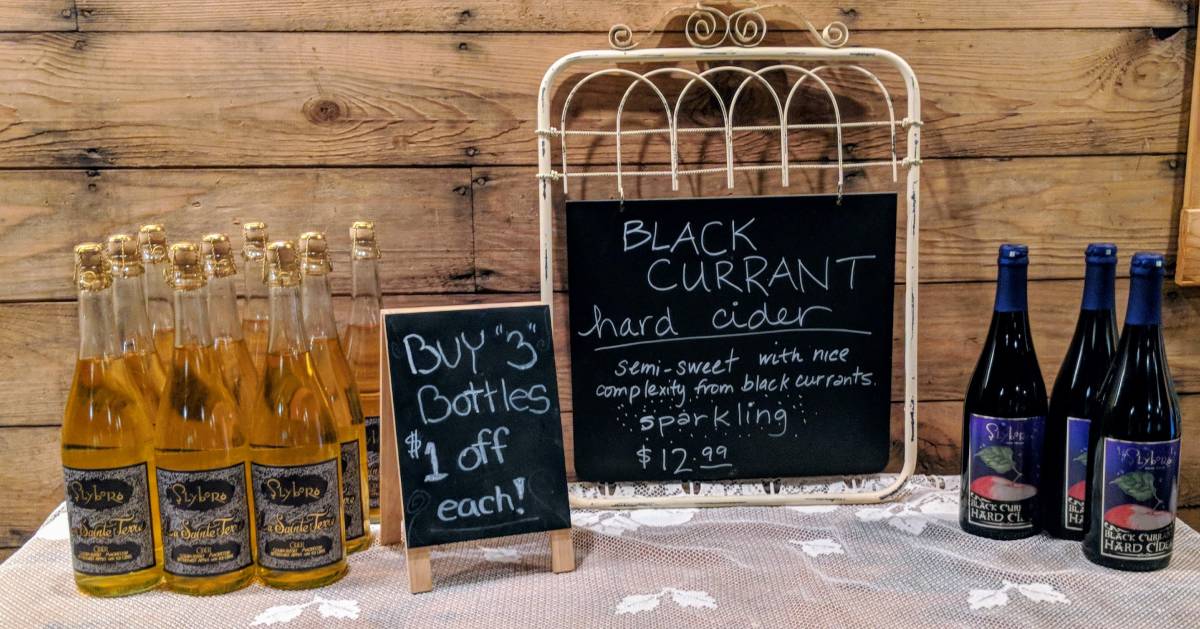 BLACK
CURRANT
hard cider
semi-sweet with nice
complexity from black currants.
sparkling
$12.99
BUY "3"
Bottles
$1 off
each!
Slyboro
La Sainte Terre
CIDER
Slyboro
La Sainte Terre
CIDER
Slyboro
La Sainte Terre
CIDER
Slyboro
BLACK CUR
HARD CI
HA
Slyboro
BLACK CURRAN
HARD CIDE